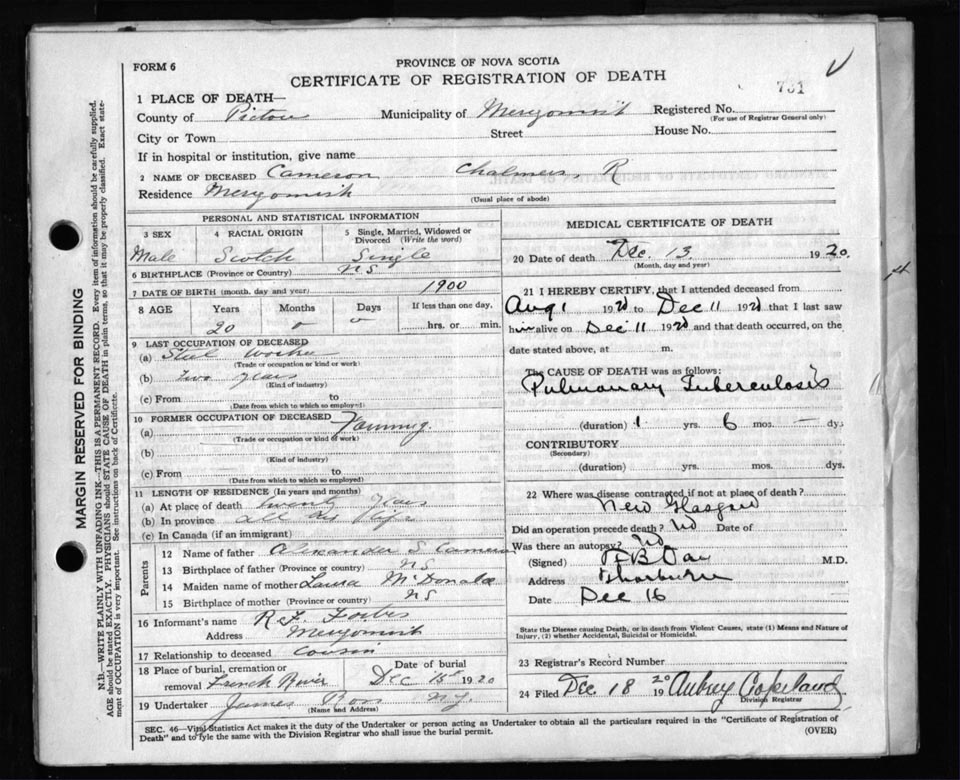 FORM 6
PROVINCE OF NOVA SCOTIA
CERTIFICATE OF REGISTRATION OF DEATH
731
1 PLACE OF DEATH—
County of Pictou Municipality of Merigomish Registered No.
(For use of Registrar General only)
City or Town Street House No.
If in hospital or institution, give name
2 NAME OF DECEASED Cameron Chalmers, R
Residence Merigomish
(Usual place of abode)
PERSONAL AND STATISTICAL INFORMATION
3 SEX 4 RACIAL ORIGIN 5 Single, Married, Widowed or Divorced (Write the word)
Male Scotch Single
6 BIRTHPLACE (Province or Country) NS
7 DATE OF BIRTH (month, day and year) 1900
8 AGE Years Months Days If less than one day,
20 0 0 hrs. or min.
9 LAST OCCUPATION OF DECEASED
(a) Steel Worker
(Trade or occupation or kind or work)
(b) two years
(Kind of industry)
(c) From to
(Date from which to which so employed)
10 FORMER OCCUPATION OF DECEASED
(a) Farming
(Trade or occupation or kind of work)
(b)
(Kind of industry)
(c) From to
(Date from which to which so employed)
11 LENGTH OF RESIDENCE (In years and months)
(a) At place of death twenty years
(b) In province all his life
(c) In Canada (if an immigrant)
Parents
12 Name of father Alexander S Cameron
13 Birthplace of father (Province or country) NS
14 Maiden name of mother Laura McDonald
15 Birthplace of mother (Province or country) NS
16 Informant's name R. F. Forbes
Address Merigomish
17 Relationship to deceased Cousin
18 Place of burial, cremation or removal French River Date of burial Dec 15th 1920
19 Undertaker James N.G.
(Name and Address)
MEDICAL CERTIFICATE OF DEATH
20 Date of death Dec. 13. 1920.
(Month, day and year)
21 I HEREBY CERTIFY, that I attended deceased from
Aug 1 1920 to Dec 11 1920 that I last saw
him alive on Dec 11 1920 and that death occurred, on the
date stated above, at m.
The CAUSE OF DEATH was as follows:
Pulmonary Tuberculosis
(duration) 1 yrs. 6 mos. – dys.
CONTRIBUTORY
(Secondary)
(duration) yrs. mos. dys.
22 Where was disease contracted if not at place of death?
New Glasgow
Did an operation precede death? No Date of
Was there an autopsy? No
(Signed) M.D.
Address Thorburn
Date Dec 16
State the Disease causing Death, or in death from Violent Causes, state (1) Means and Nature of
Injury, (2) whether Accidental, Suicidal or Homicidal.
23 Registrar's Record Number
24 Filed Dec 18 1920 Aubrey Copeland
Division Registrar
SEC. 46—Vital Statistics Act makes it the duty of the Undertaker or person acting as Undertaker to obtain all the particulars required in the "Certificate of Registration of
Death" and to fyle the same with the Division Registrar who shall issue the burial permit.
(OVER)
MARGIN RESERVED FOR BINDING
N.B.—WRITE PLAINLY WITH UNFADING INK—THIS IS A PERMANENT RECORD. Every item of information should be carefully supplied.
AGE should be stated EXACTLY. PHYSICIANS should STATE CAUSE OF DEATH in plain terms, so that it may be properly classified. Exact statement of OCCUPATION is very important. See instructions on back of Certificate.